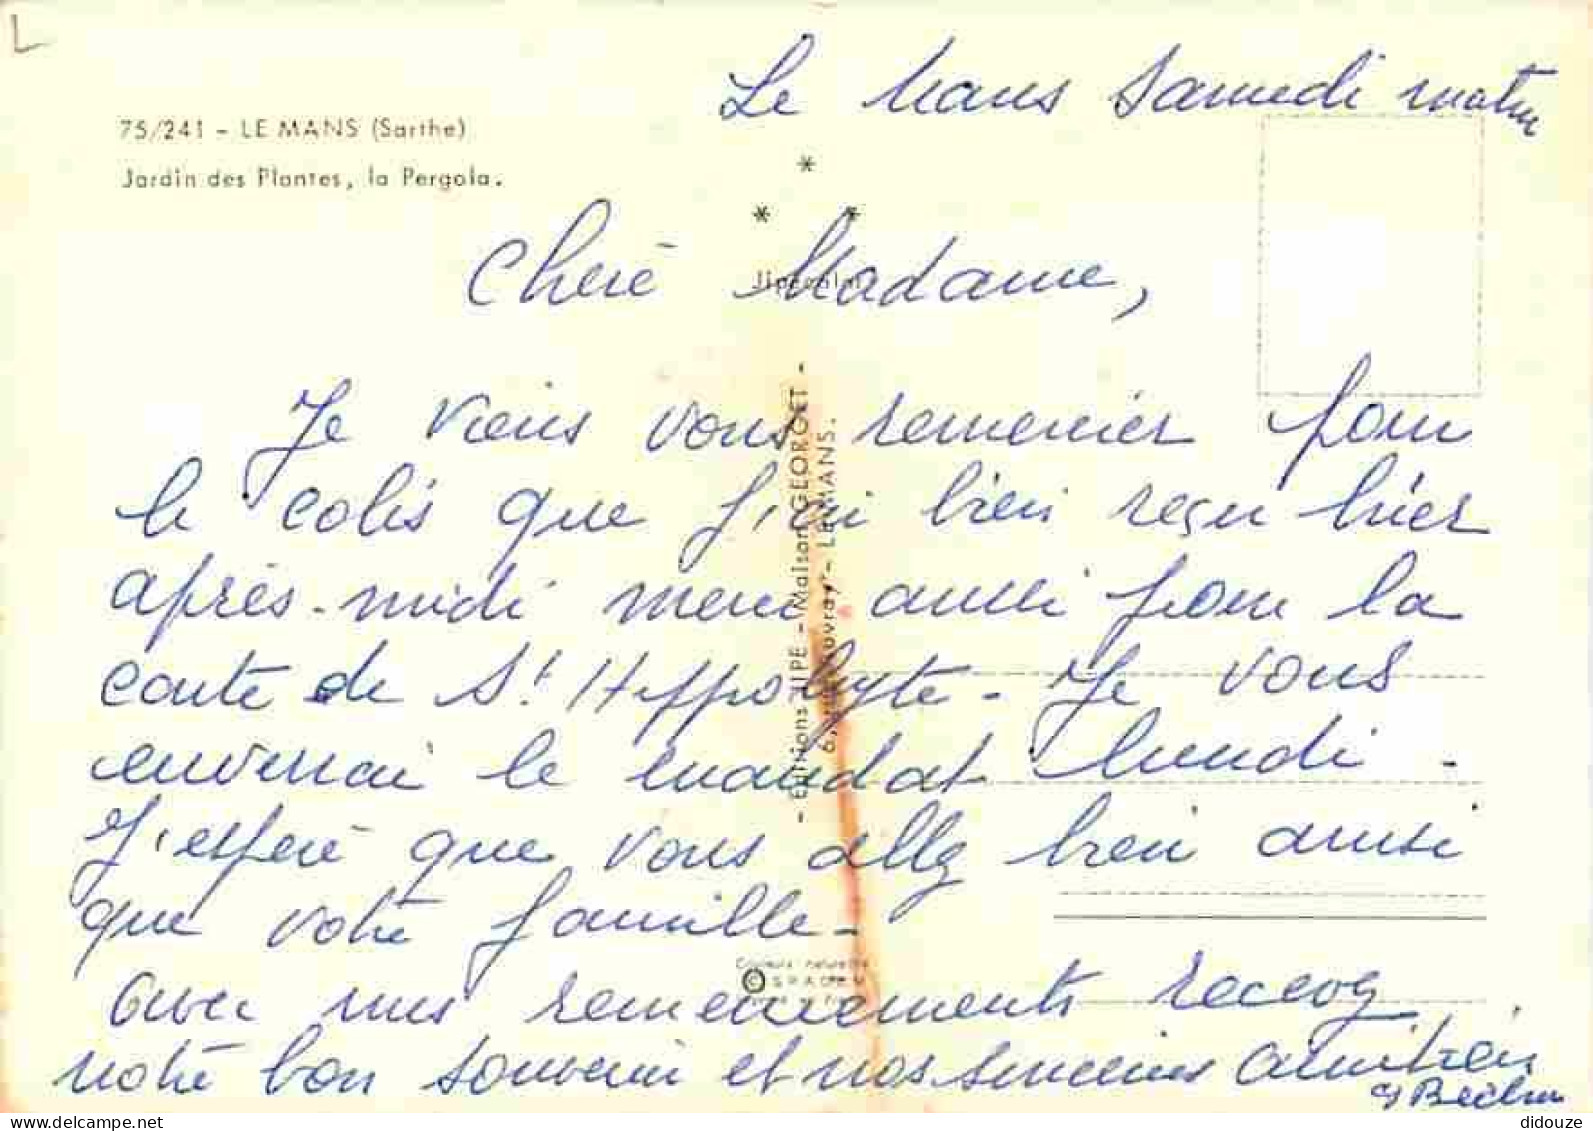 Le Mans Samedi matin
75/241 - LE MANS (Sarthe)
Jardin des Plantes, la Pergola.
* * *
Jipécolor
Chère Madame,
Je viens vous remercier pour
le colis que j'ai bien reçu hier
après-midi merci aussi pour la
carte de St Hippolyte - Je vous
enverrai le mandat lundi -
J'espère que vous allez bien ainsi
que votre famille -
Avec mes remerciements recevez
notre bon souvenir et nos sincères amitiés
- Editions JIPE - Maison GEORGET -
6, LE MANS.
Couleurs naturelles
© S.P.A.D.E.M.
didouze